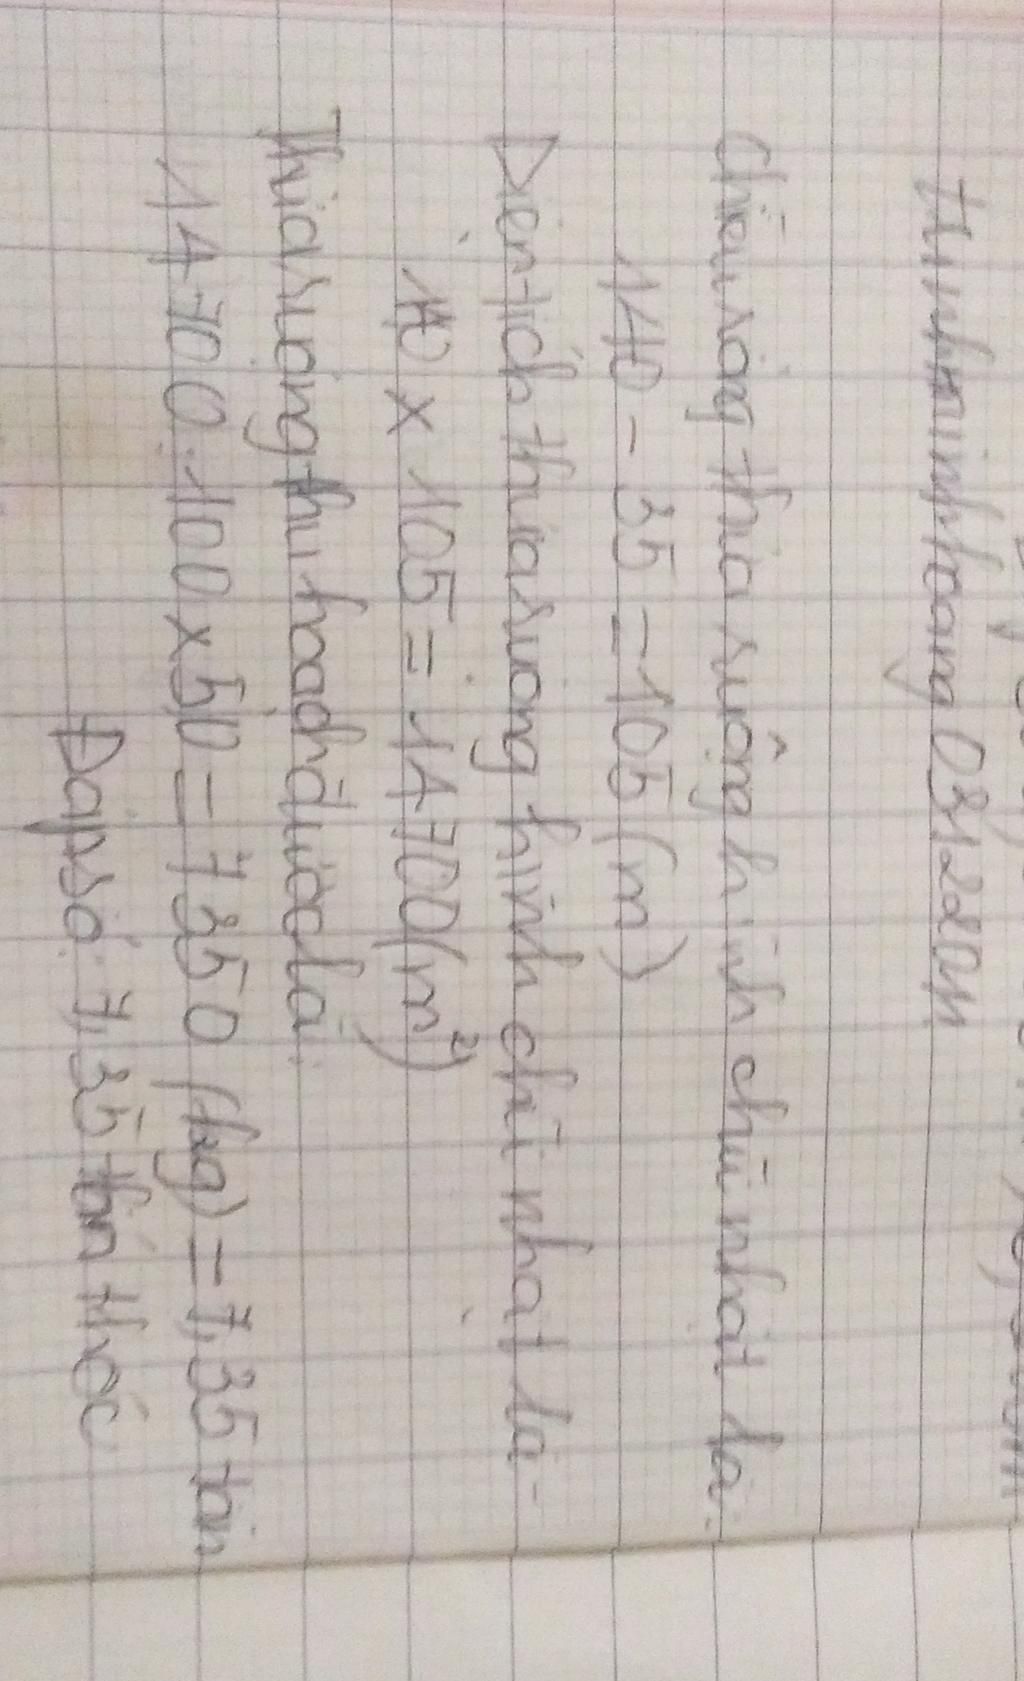 Chiều rộng thửa ruộng hình chữ nhật là:
140 - 35 = 105 (m)
Diện tích thửa ruộng hình chữ nhật là:
140 x 105 = 14700 (m²)
Thửa ruộng thu hoạch được là:
14700:100 x 50 = 7350 (kg) = 7,35 tấn
Đáp số: 7,35 tấn thóc